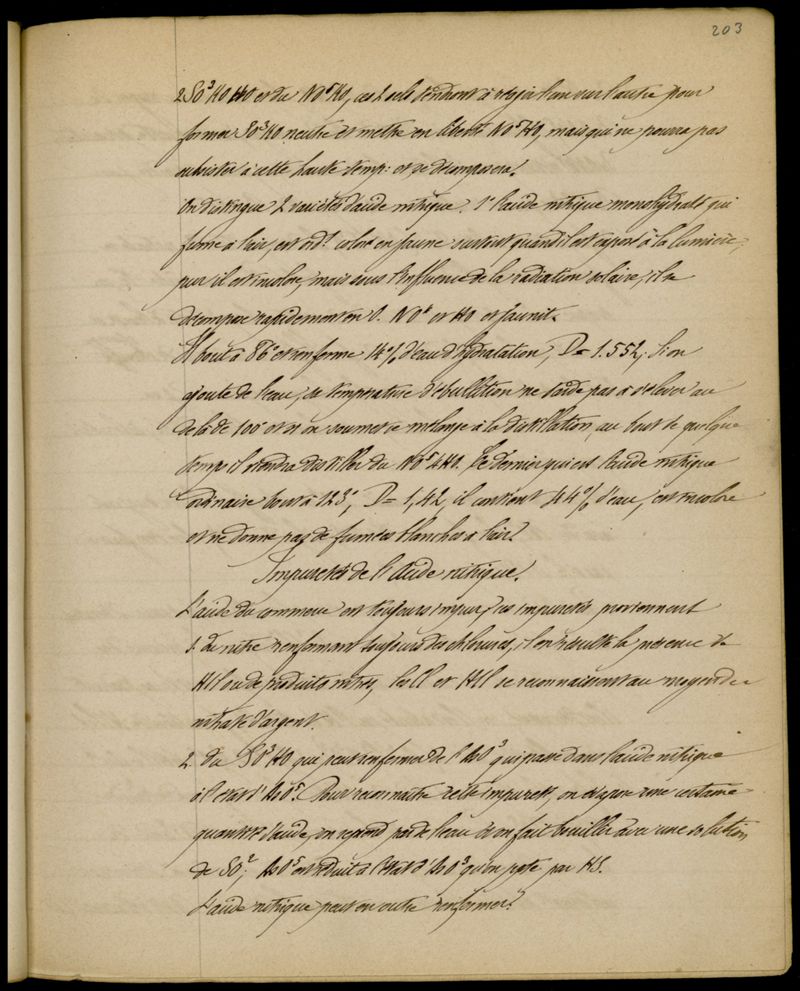 203
2SO³HO HO et du NO⁵HO, ces 2 sels tendront à réagir l'un sur l'autre pour
former SO³HO neutre et mettre en liberté NO⁵HO, mais qui ne pourra pas
subsister à cette haute temp: et se décomposera.
On distingue 2 variétés d'acide nitrique. 1° l'acide nitrique monohydraté qui
fume à l'air, est ord.t coloré en jaune surtout quand il est exposé à la lumière;
pur il est incolore, mais sous l'influence de la radiation solaire, il se
décompose rapidement en O. NO⁴ et HO et jaunit.
Il bout à 86° et renferme 14% d'eau d'hydratation, D= 1.552; Si on
ajoute de l'eau, sa température d'ébullition ne tarde pas à s'élever au
delà de 100° et si on soumet ce mélange à la distillation, au bout de quelque
temps il viendra distiller du NO⁵4HO. Ce dernier qui est l'acide nitrique
ordinaire bout à 123°, D= 1,42, il contient 44% d'eau, est incolore
et ne donne pas de fumées blanches à l'air.
Impuretés de l'Acide nitrique.
L'acide du commerce est toujours impur, ces impuretés proviennent
1. du nitre renfermant toujours des chlorures, il en résulte la présence de
HCl ou de produits nitrés, les Cl et HCl se reconnaissent au moyen du
nitrate d'argent.
2. du SO³HO qui peut renfermer de l'AsO³ qui passe dans l'acide nitrique
à l'état d'AsO⁵. Pour reconnaître cette impureté, on évapore une certaine
quantité d'acide, on reprend par de l'eau et on fait bouillir avec une solution
de SO²; AsO⁵ est réduit à l'état d'AsO³ qu'on ppte par HS.
L'acide nitrique peut en outre renfermer.